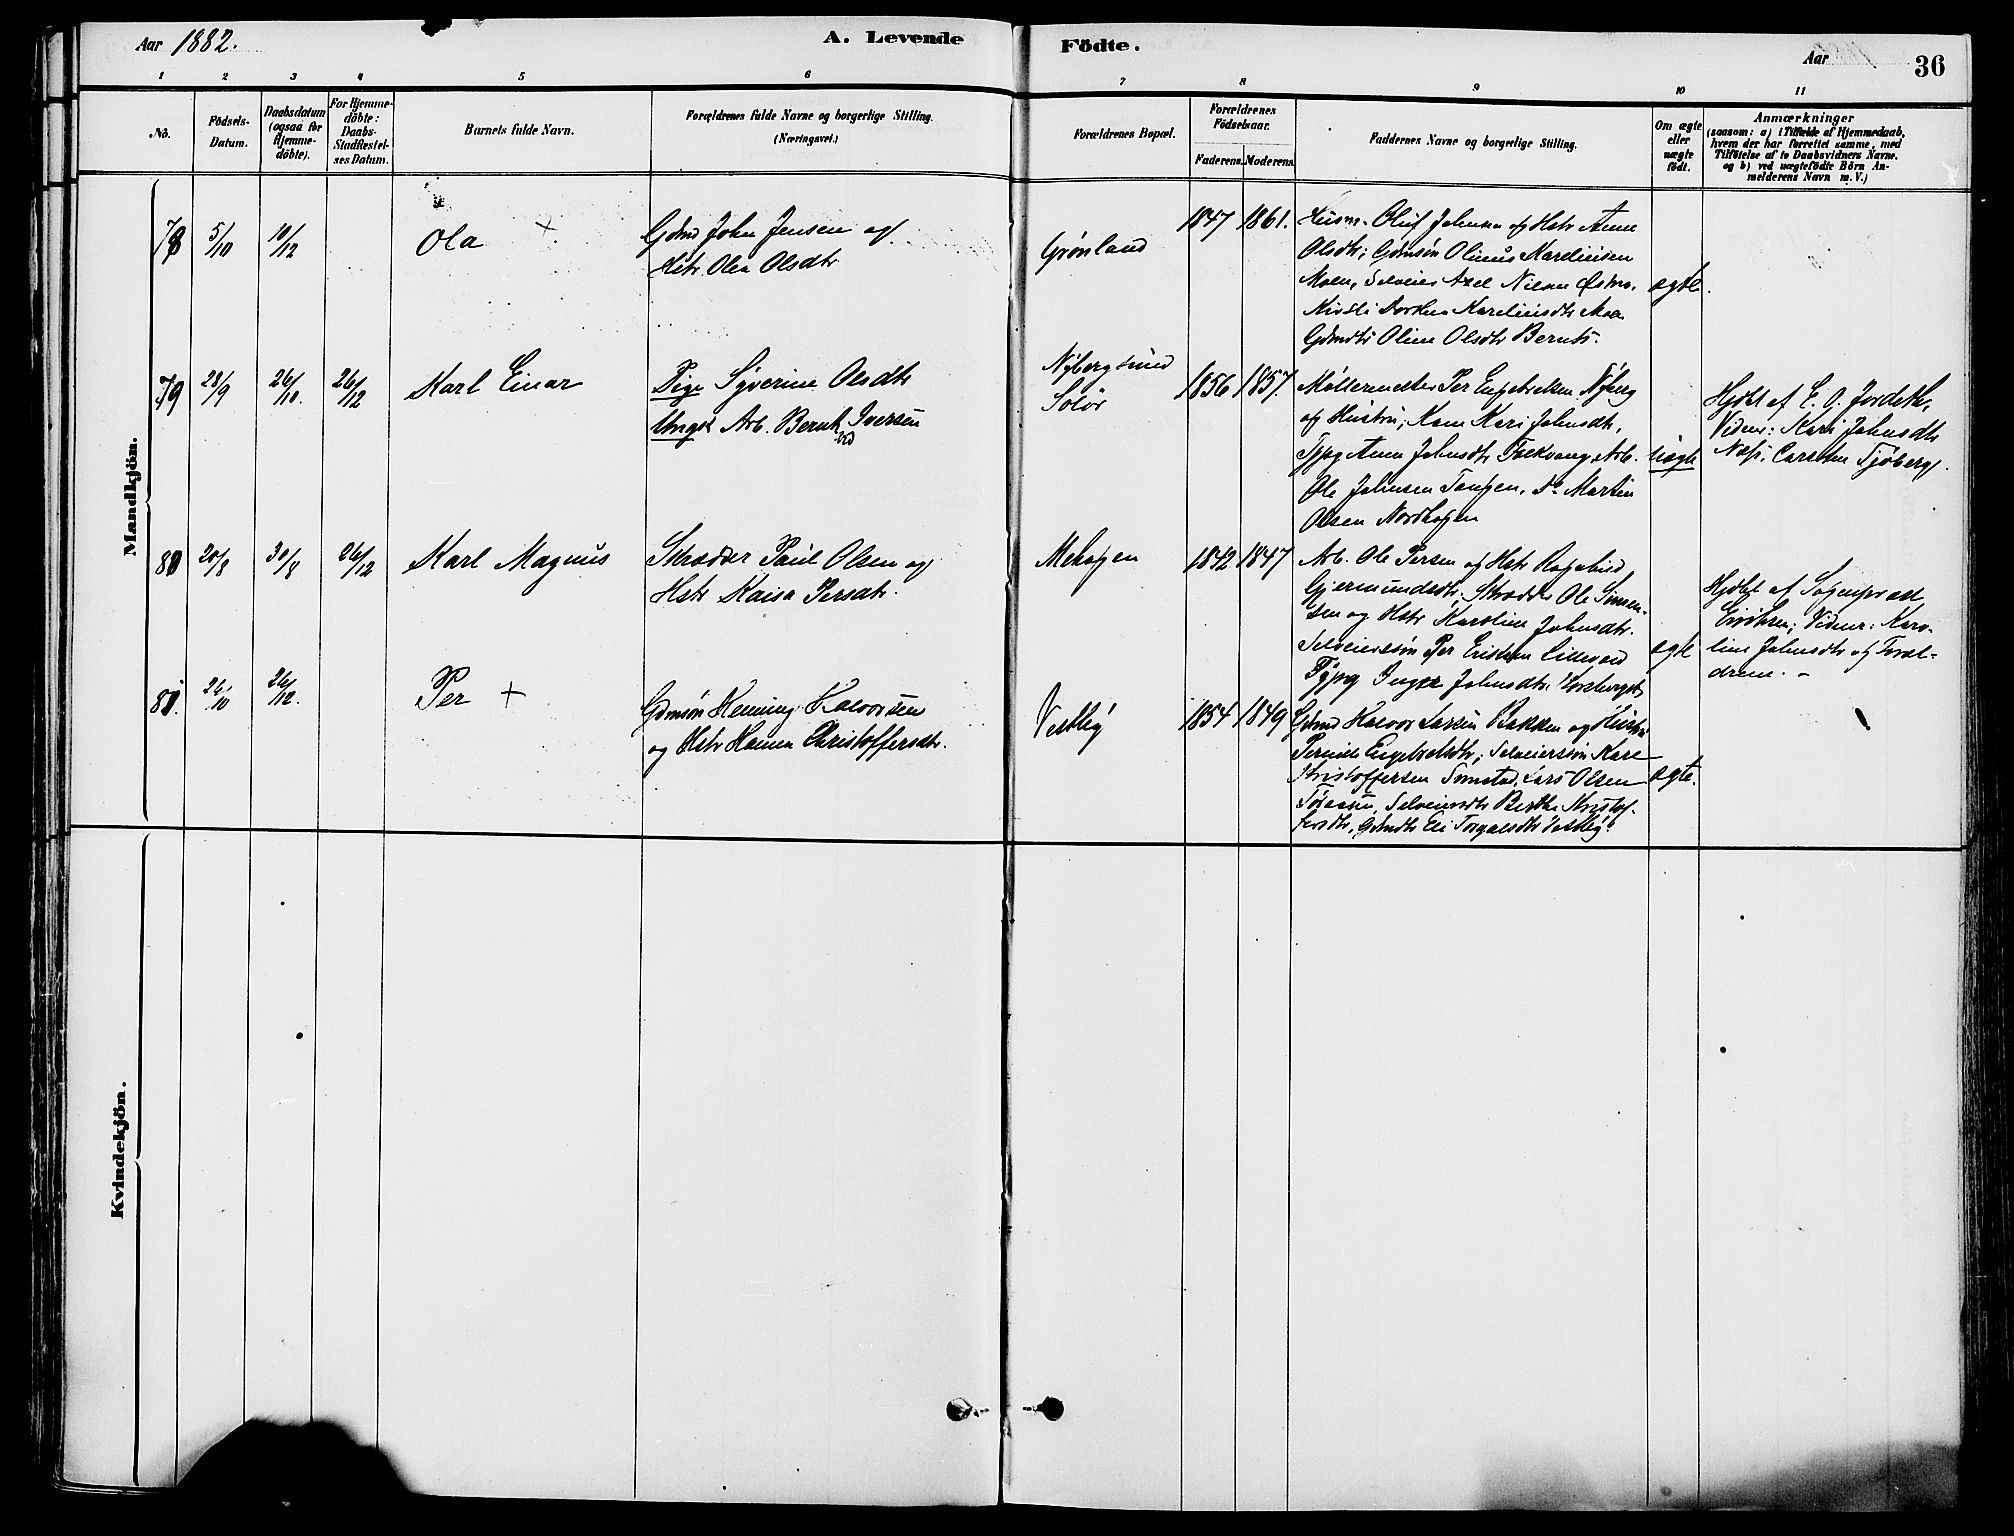 Aar 1882.
A. Levende
Födte.
Aar
36
1
2
3
4
5
6
7
8
9
10
11
No.
Födsels-
Datum.
Daabsdatum
(ogsaa for
Hjemme-
döbte).
For Hjemme-
döbte:
Daabs-
Stadfæstel-
ses Datum.
Barnets fulde Navn.
Forældrenes fulde Navne og borgerlige Stilling.
(Næringsvei.)
Forældrenes Bopæl.
Forældrenes
Födselsaar.
Faderens.
Moderens.
Faddernes Navne og borgerlige Stilling.
Om ægte
eller
uægte
födt.
Anmærkninger
(saasom: a) i Tilfælde af Hjemmedaab,
hvem der har forrettet samme, med
Tilföielse af to Daabsvidners Navne.
og b) ved uægtefödte Börn An-
melderens Navn m. V.)
Mandkjön.
78
5/10
10/12
Ola
Gdmd John Jensen og
Hstr. Olea Olsdtr
Grønland
1847
1861.
Husm. Oluf Johnsen og Hstr Anne
Olsdtr; Gdmsøn Olinus Karelinsen
Moen, Selveier Axel Nilsen
Karelinsdtr Moen
Gdmdtr Oline Olsdtr Bernts.
ægte.
79
28/9
26/10.
26/12
Karl Einar
Pige Syverine Olsdtr
Ungk. Arb. Bernh Iversen
Nybergsund
Solör
1856
1857.
Møllermester Per Engebretsen Nyberg
og Hustru; Kone Kari Johnsdtr,
Tjpg Anne Johnsdtr Arb.
Ole Johnsen Tangen, Do Martin
Olsen Nordhagen
uægte
Hjdbt af E. O. Jordeth,
Vidner: Kari Johnsdtr
Næss, Carsten Sjøberg.
80
20/8
30/8
26/12
Karl Magnus
Skrædder Paul Olsen og
Hstr Kaisa Persdtr.
Mehagen
1842
1847
Arb. Ole Persen og Hstr Ragnhild
Gjermundsdtr, Skrædder Ole Simen-
sen og Hstr Karoline Johnsdtr.
Selveiersøn Per Eriksen
Tjpg Inger Johnsdtr
ægte
Hjdbt af Sogneprest
Eriksen; Vidner: Karo-
line Johnsdtr og Foræl-
drene.
81.
26/10
26/12.
Per
Gdmsøn Henning Halvorsen
og Hstr Hanna Christoffersdtr.
Vestby
1854
1849
Gdmd Halvor Larsen Bakken og Hustru
Pernille Engebretsdtr; Selveiersøn Karl
Kristoffersen Lars Olsen
Selveierdtr Berthe Kristof-
fersdtr, Gdmdtr Eli Vestby.
ægte.
Kvindekjön.